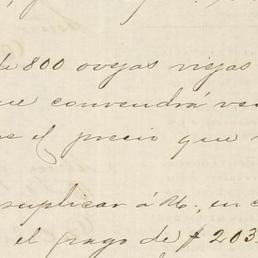 de 800 ovejas viejas
que convendrá ve
el precio que
suplicar á U., en c
el pago de $ 203